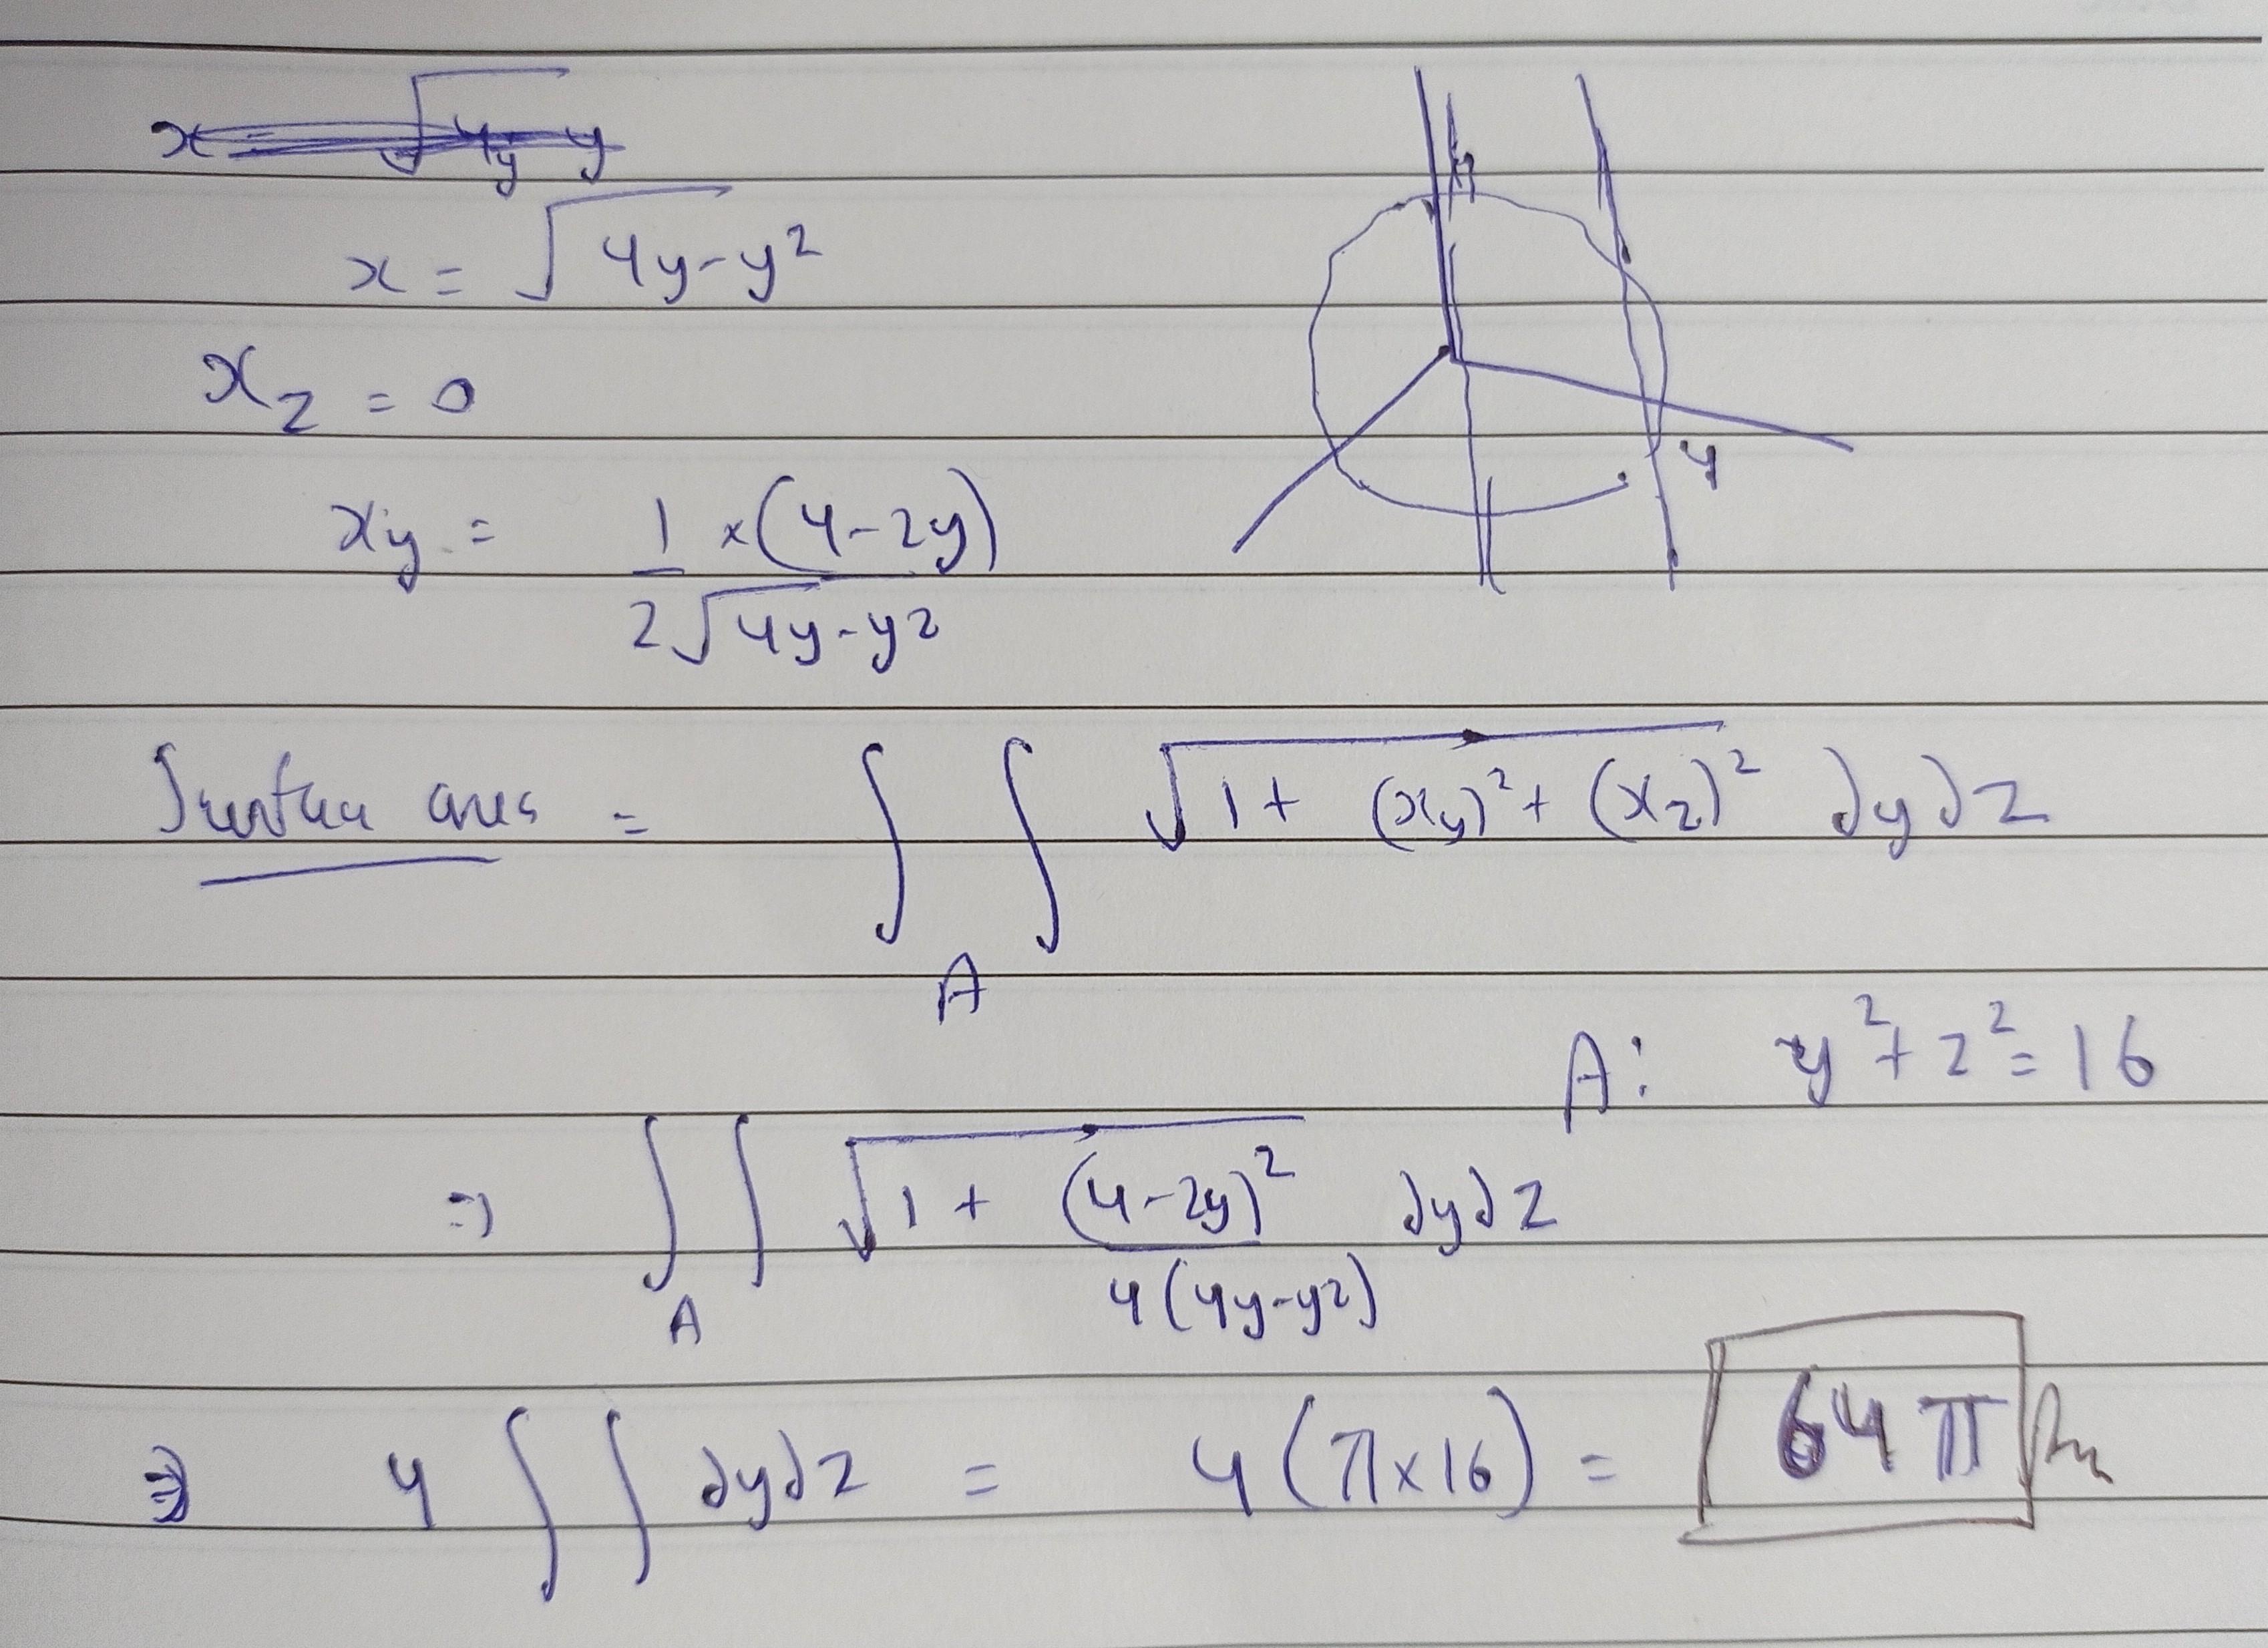 x = √4y-y
x = √4y-y²
x_z = 0
x_y = 1/(2√4y-y²) × (4-2y)
4
Surface area = ∫∫_A √1 + (x_y)² + (x_z)² dydz
A: y² + z² = 16
⇒ ∫∫_A √1 + (4-2y)²/4(4y-y²) dydz
⇒ 4 ∫∫ dydz = 4(π×16) = 64π